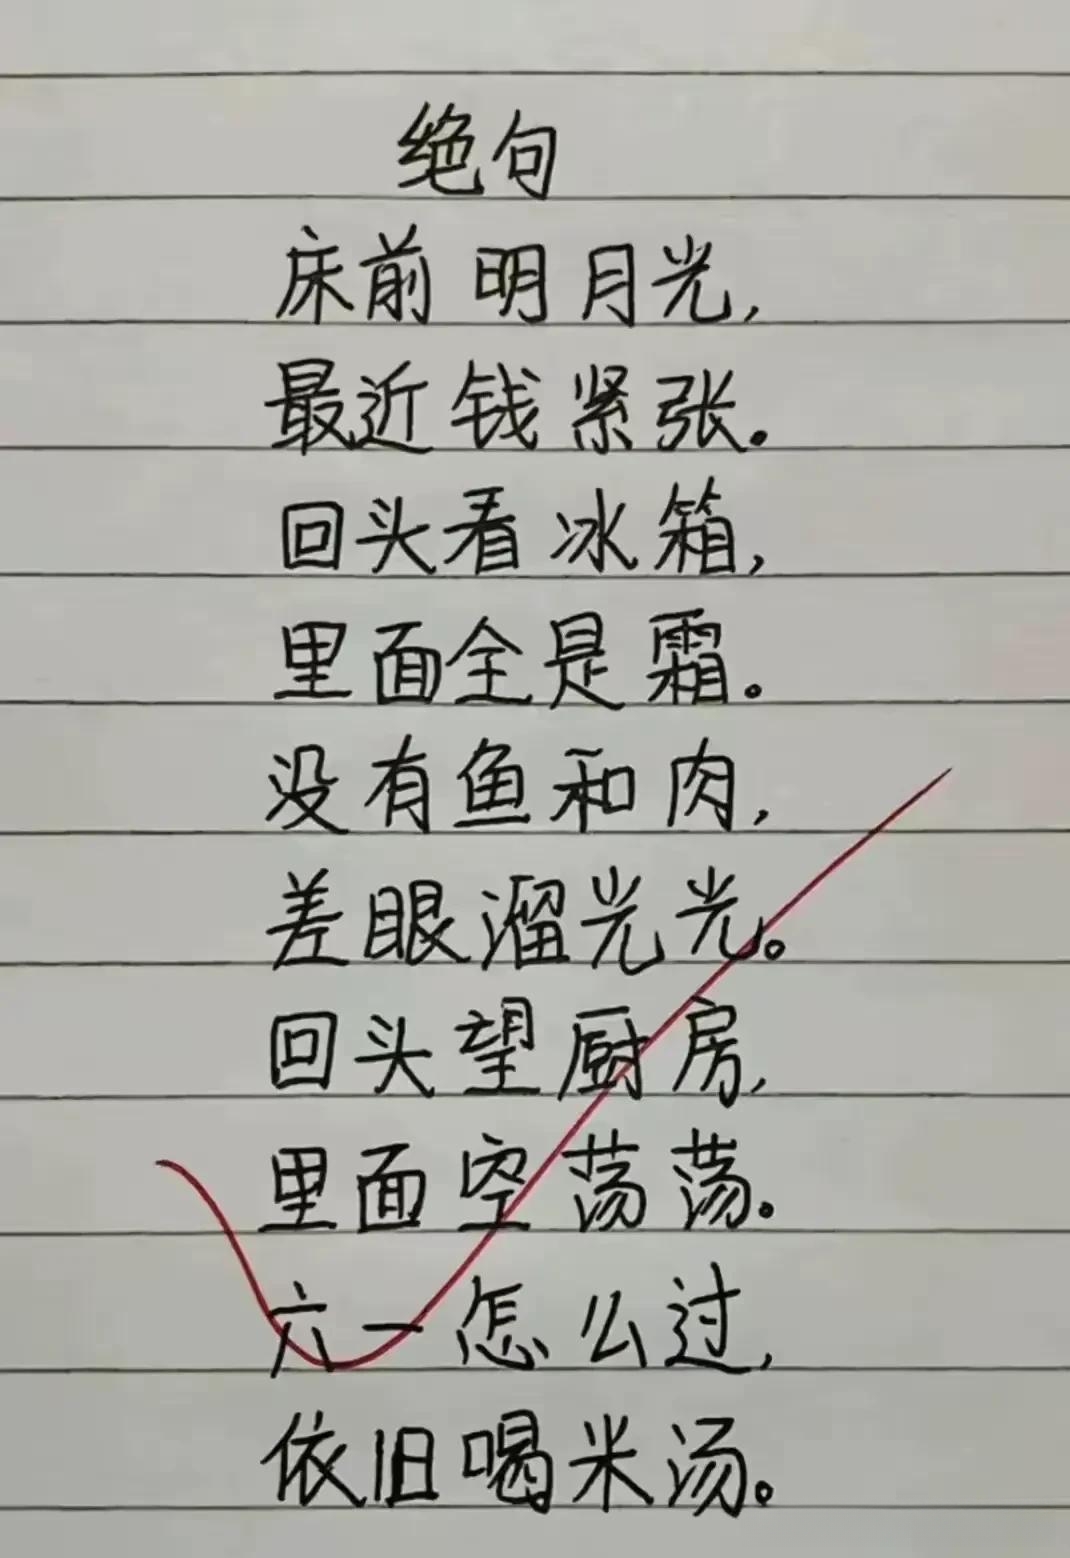 绝句
床前明月光,
最近钱紧张。
回头看冰箱,
里面全是霜。
没有鱼和肉,
差眼溜光光。
回头望厨房,
里面空荡荡。
六一怎么过,
依旧喝米汤。